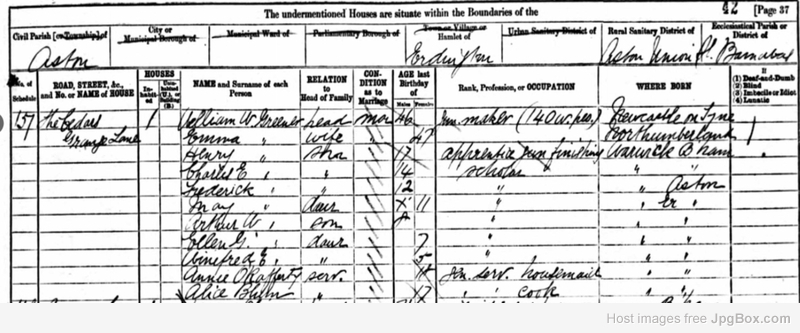 The undermentioned Houses are situate within the Boundaries of the
42 [Page 37
Civil Parish [or Township] of
City or Municipal Borough of
Municipal Ward of
Parliamentary Borough of
Town or Village or Hamlet of
Urban Sanitary District of
Rural Sanitary District of
Ecclesiastical Parish or District of
Aston Erdington Aston Union St. Barnabas
No. of Schedule
ROAD, STREET, &c., and No. or NAME of HOUSE
HOUSES
In-habited
Unin-habited (U.), or Building (B.)
NAME and Surname of each Person
RELATION to Head of Family
CON-DITION as to Marriage
AGE last Birthday of
Males Females
Rank, Profession, or OCCUPATION
WHERE BORN
If
(1) Deaf-and-Dumb
(2) Blind
(3) Imbecile or Idiot
(4) Lunatic
157 The Cedars 1 William W. Greener head mar 46 Gun maker (140 w. peo) Newcastle on Tyne
Grange Lane Emma " wife " 47 Northumberland
Henry " son 17 apprentice gun finishing Warwick B'ham
Charles E. " " 14 scholar " "
Frederick " " 12 " " Aston
May " daur 11 " "
Arthur W. " son 8 " " "
Ellen G. " daur 7 " " "
Winefred E. " " 5 " " "
Annie O'Rafferty serv. 18 Gen. serv. housemaid " "
Alice " 17 " " cook " "
Host images free JpgBox.com